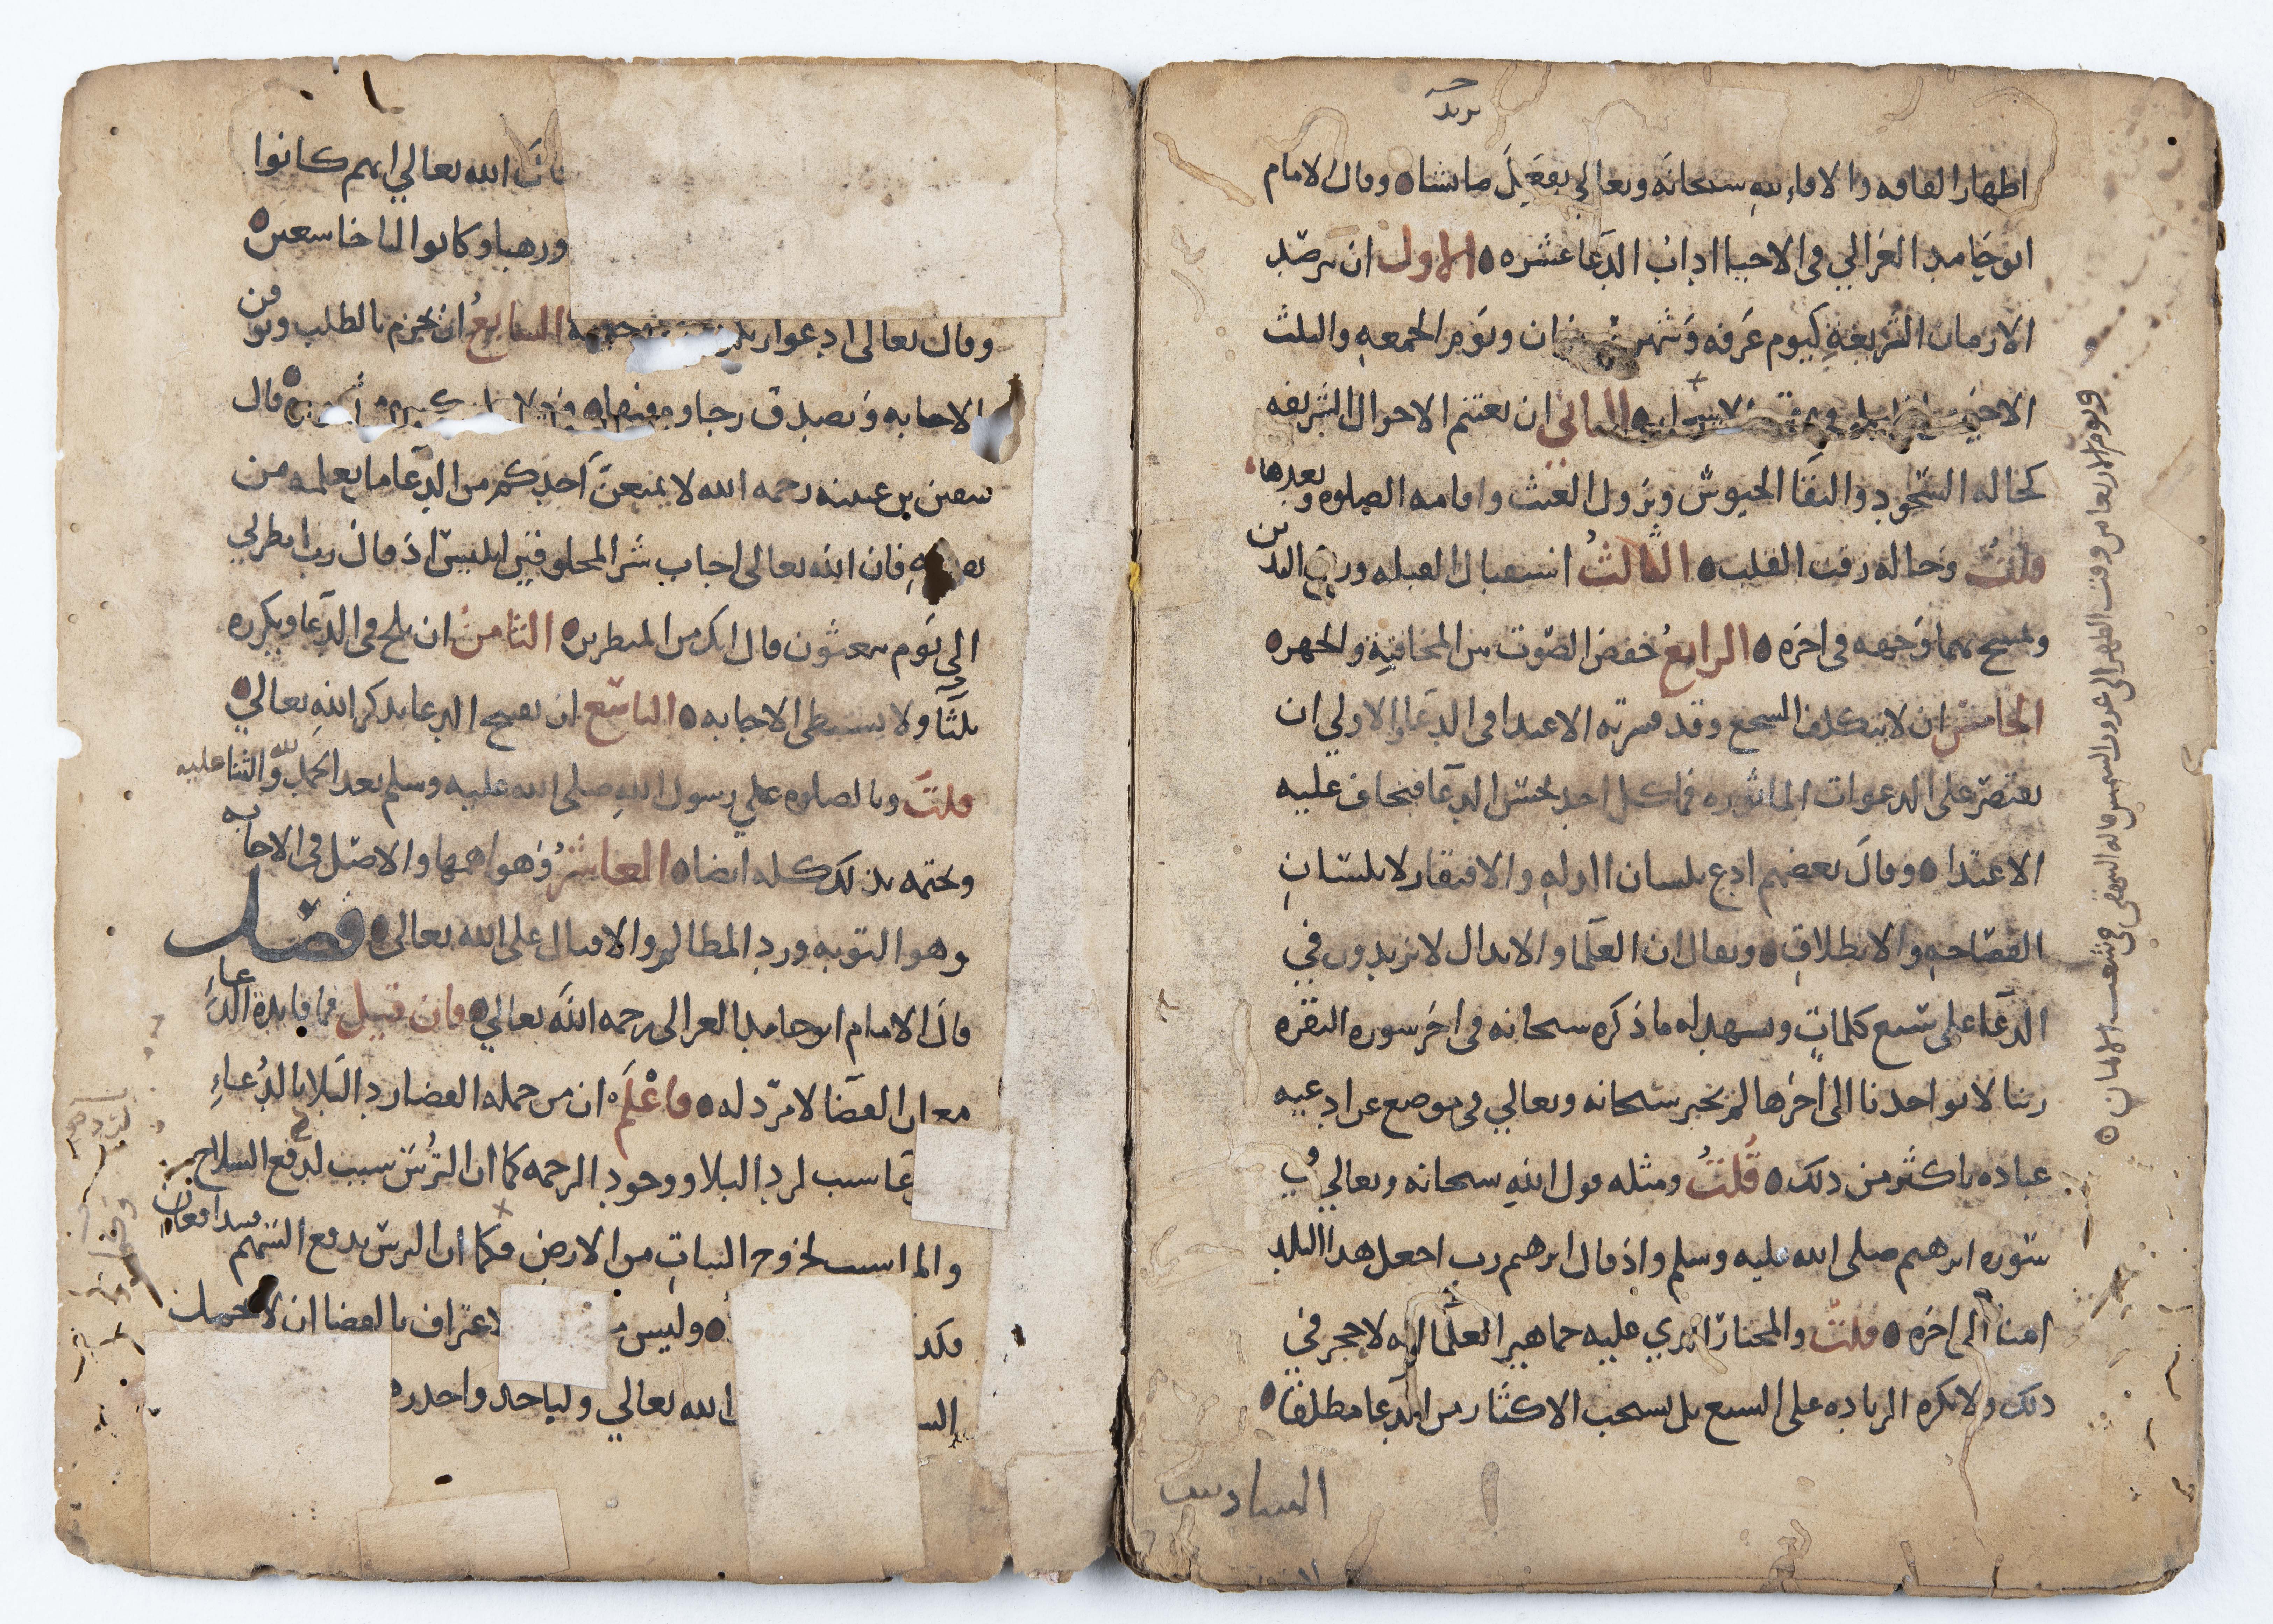 اظهار الفاقه والله سبحانه وتعالى يفعل ما يشاء وقال الامام
ابو حامد الغزالي في الاحيا اداب الدعا عشره الاول ان يترصد
الازمان الشريفه كيوم عرفه وشهر رمضان ويوم الجمعه والثلث
الاخير من الليل ووقت الاسحار الثاني ان يغتنم الاحوال الشريفه
كحاله السجود والتقا الجيوش ونزول الغيث واقامه الصلوه وبعدها
قلت وحاله رقت القلب الثالث استقبال القبله ورفع اليدين
ويمسح بهما وجهه في اخره الرابع خفض الصوت بين المخافته والجهر
الخامس ان لا يتكلف السجع وقد فسر به الاعتدا في الدعا والاولي ان
يقتصر على الدعوات الماثوره فما كل احد يحسن الدعا فيخاف عليه
الاعتدا وقال بعضهم ادع بلسان الذله والافتقار لا بلسان
الفصاحه والانطلاق ويقال ان العلما والابدال لا يزيدون في
الدعا على سبع كلمات ويشهد له ما ذكره سبحانه في اخر سوره البقره
ربنا لا تواخذنا الى اخرها لم يخبر سبحانه وتعالي في موضع عن ادعيه
عباده باكثر من ذلك قلت ومثله قول الله سبحانه وتعالي في
سوره ابرهيم صلى الله عليه وسلم واذ قال ابرهيم رب اجعل هذا البلد
امنا الى اخره قلت والمختار الذي عليه جماهير العلما انه لا حجر في
ذلك ولا تكره الزياده على السبع بل يستحب الاكثار من الدعا مطلقا
السادس
ويوم الاربعا من وقت الظهر الى غروب الشمس قاله البيهقي في شعب الايمان
الله تعالي انهم كانوا
ورهبا وكانوا لنا خاشعين
وقال تعالى ادعوا ربكم السابع ان يجزم بالطلب ويوقن
بالاجابه ويصدق رجاوه فيها قال
سفين بن عيينه رحمه الله لا يمنعن احدكم من الدعا ما يعلمه من
نفسه فان الله تعالى اجاب شر المخلوقين ابليس اذ قال رب انظرني
الى يوم يبعثون قال انك من المنظرين الثامن ان يلح في الدعا ويكرره
ثلثا ولا يستبطى الاجابه التاسع ان يفتتح الدعا بذكر الله تعالي
قلت وبالصلوه علي رسول الله صلى الله عليه وسلم بعد الحمد لله والثنا عليه
ويختمه بذلك كله ايضا العاشر وهو اهمها والاصل في الاجابه
وهو التوبه ورد المظالم والاقبال على الله تعالى فصل
قال الامام ابو حامد الغزالى رحمه الله تعالي فان قيل فما فايدة الدعاء
مع ان القضا لا مرد له فاعلم ان من جمله القضا رد البلا بالدعاء
سبب لرد البلا ووجود الرحمه كما ان الترس سبب لدفع السلاح
والما سبب لخروج النبات من الارض فكما ان الترس يدفع السهم فيتدافعان
فكذ وليس الاعتراف بالقضا ان لا يحمل
الله تعالي ولياخذوا حذرهم